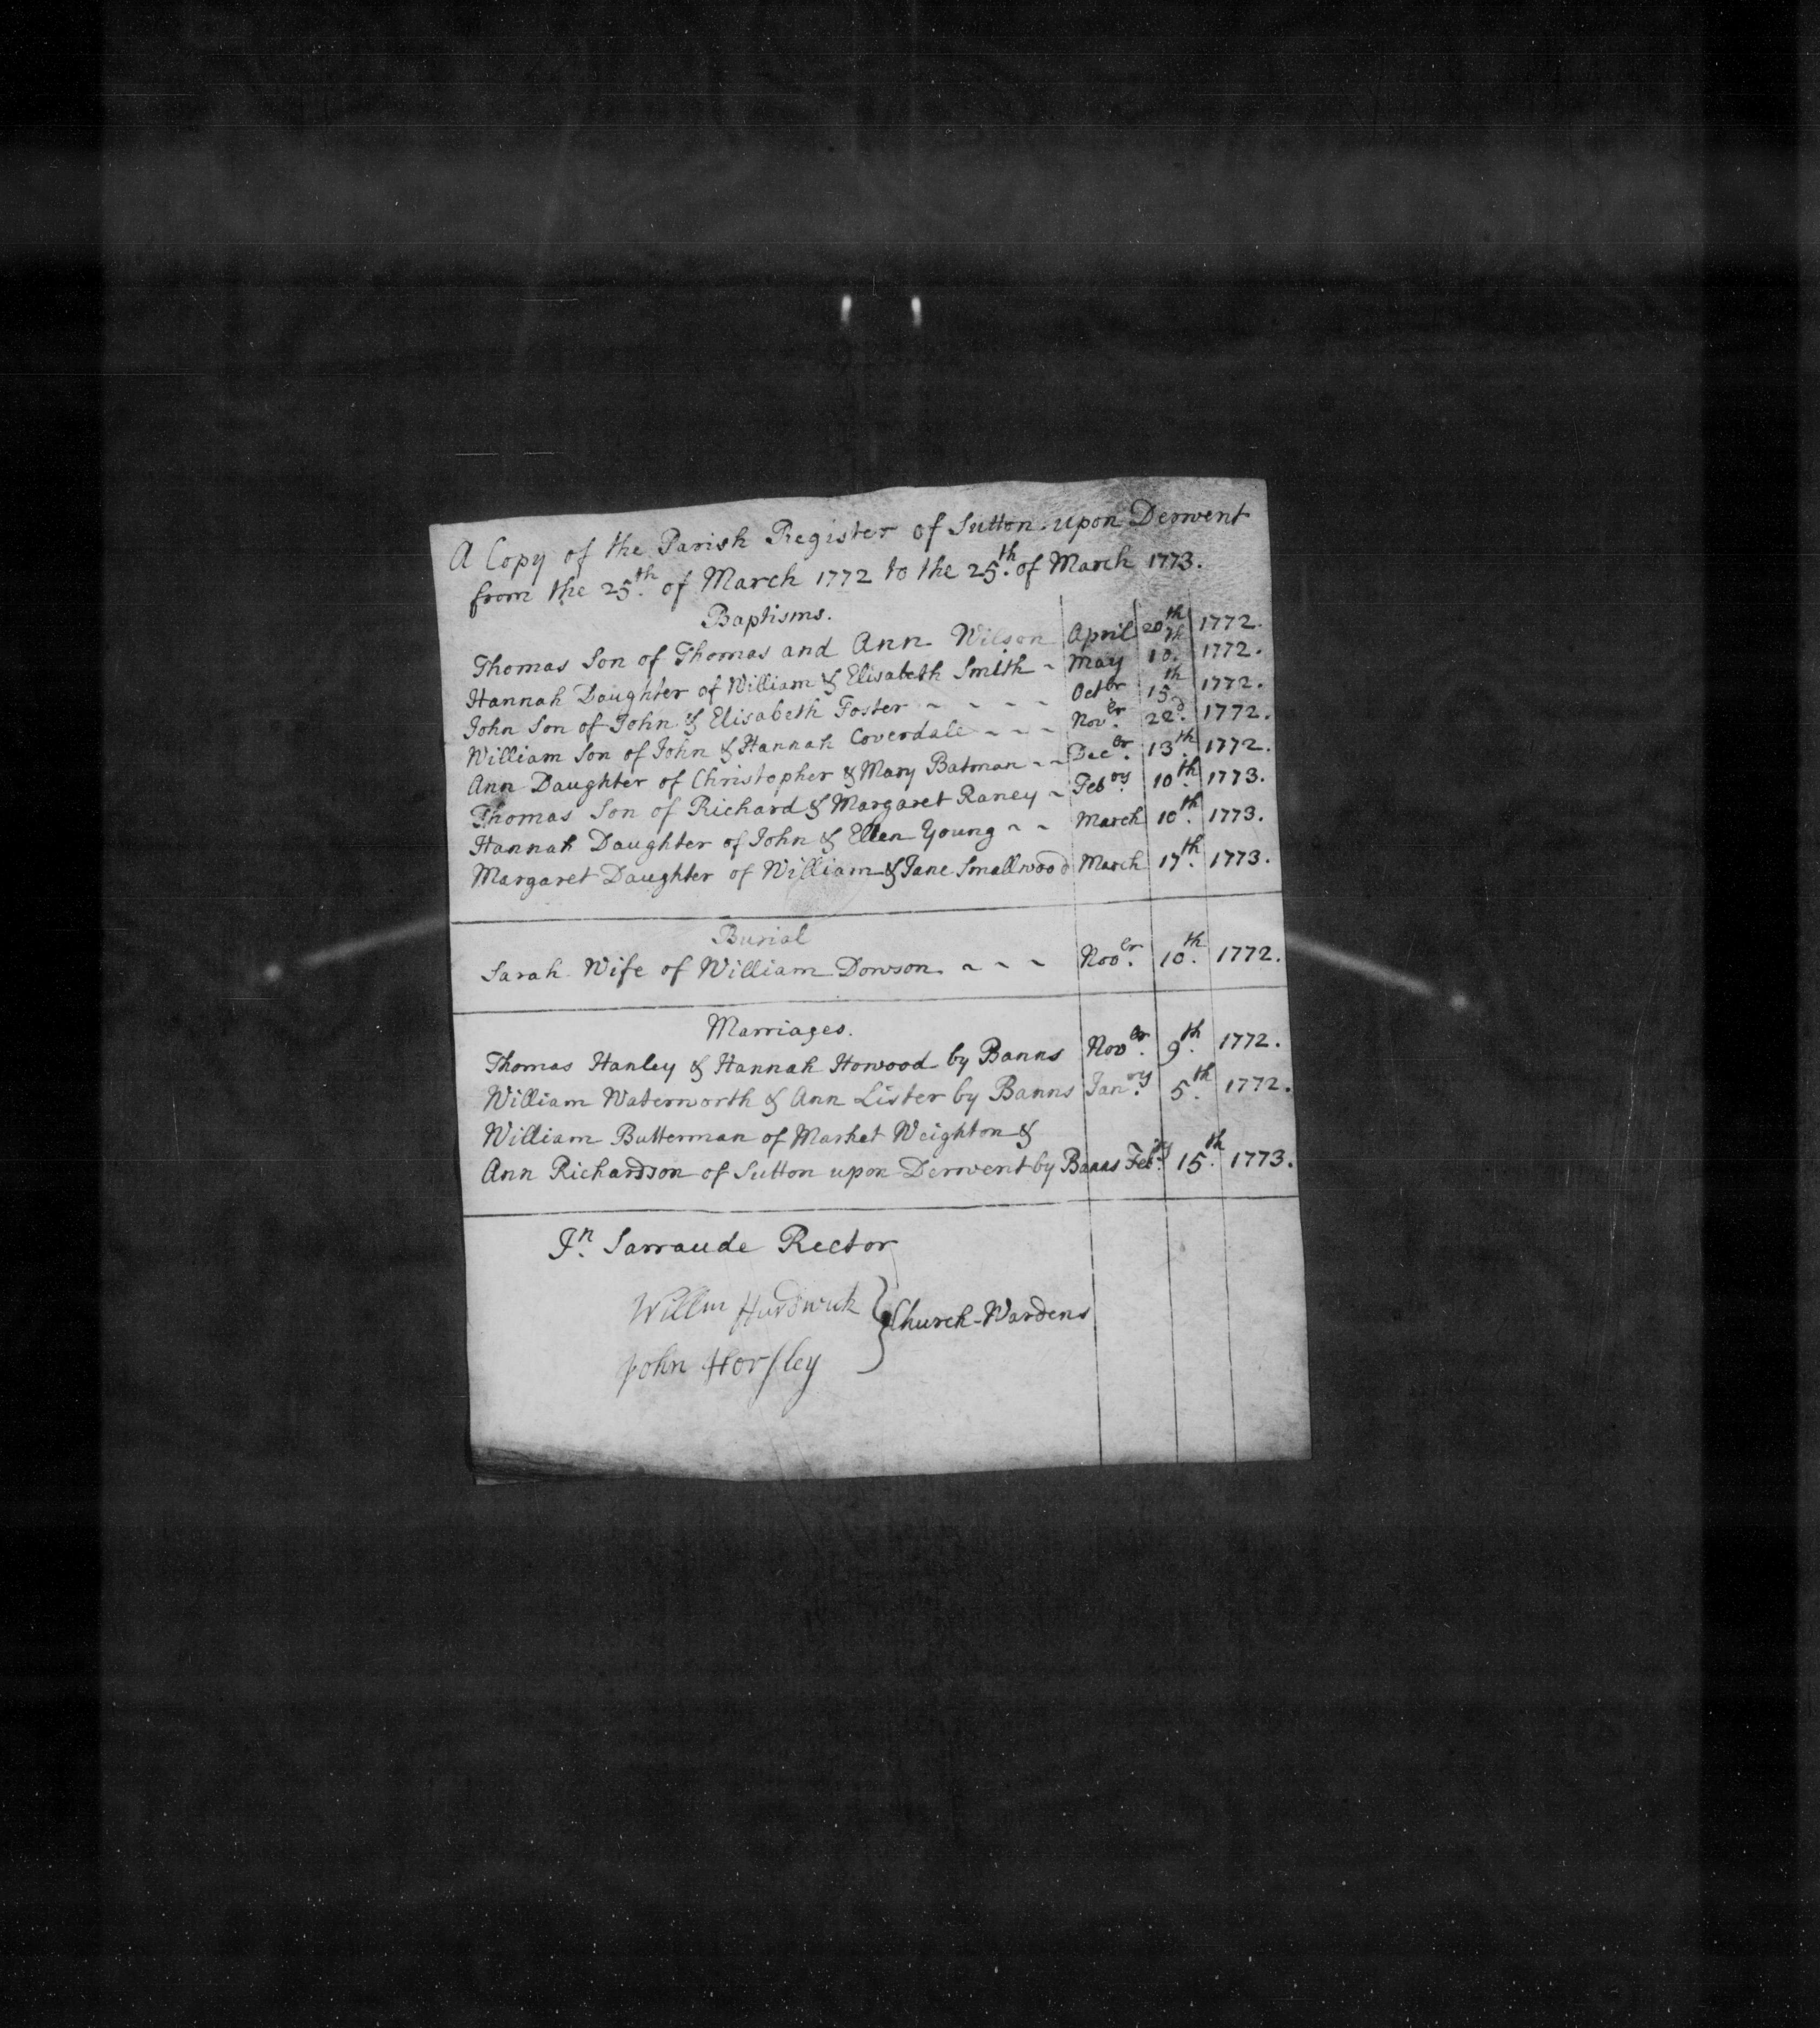 A Copy of the Parish Register of Sutton upon Derwent
from the 25th. of March 1772 to the 25th. of March 1773.
Baptisms.
Thomas Son of Thomas and Ann Wilson April 20th 1772.
Hannah Daughter of William & Elisabeth Smith ~ May 10th. 1772.
John Son of John & Elisabeth Foster ~ ~ ~ ~ Octbr 15th 1772.
William Son of John & Hannah Coverdale ~ ~ ~ Nover. 22d. 1772.
Ann Daughter of Christopher & Mary Batman ~ ~ Decer. 13th. 1772.
Thomas Son of Richard & Margaret Raney ~ Febry. 10th. 1773.
Hannah Daughter of John & Ellen Young ~ ~ March 10th. 1773.
Margaret Daughter of William & Jane Smallwood March 17th. 1773.
Burial
Sarah Wife of William Dowson. ~ ~ ~ Nover. 10th. 1772.
Marriages.
Thomas Hanley & Hannah Howood by Banns Nover. 9th. 1772.
William Waterworth & Ann Lister by Banns Janry. 5th. 1772.
William Butterman of Market Weighton &
Ann Richardson of Sutton upon Derwent by Banns Febry. 15th. 1773.
Jn. Sarraude Rector
Willm Hurdwick } Church-Wardens
John Horsley